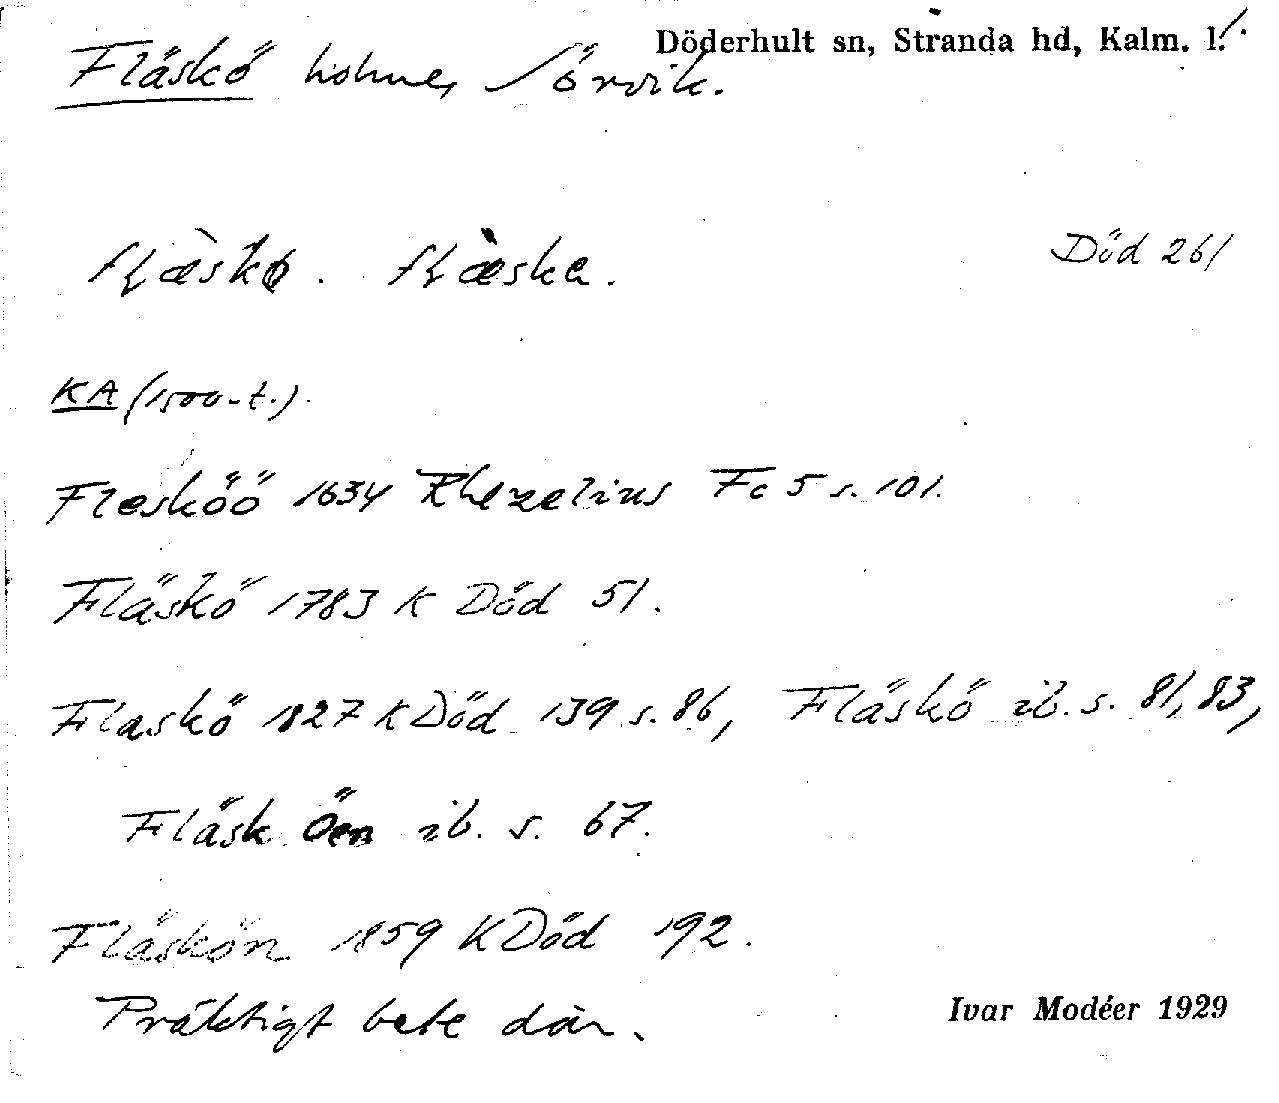 Döderhult sn, Stranda hd, Kalm. l.
Fläskö holme, Sörvik.
flæ̀skø. flæ̀ska.
Död 261
KA (1500-t.).
Flesköö 1634 Rhezelius Fc 5 s. 101.
Fläskö 1783 K Död 51.
Flaskö 1827 K Död 139 s. 86, Fläskö ib. s. 81, 83,
Fläsk Öen ib. s. 67.
Fläskön 1859 K Död 192.
Präktigt bete där.
Ivar Modéer 1929